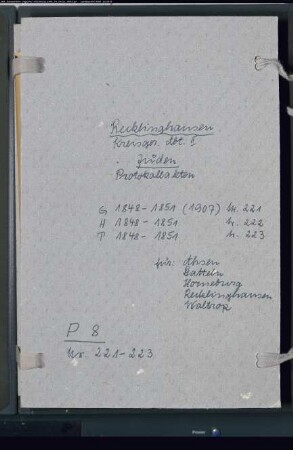 Recklinghausen
Kreisger. Abt. I
Juden
Protokollakten
G 1848-1851 (1907) Nr. 221
H 1848-1851 Nr. 222
T 1848-1851 Nr. 223
für: Ahsen
Datteln
Horneburg
Recklinghausen
Waltrop
P 8
Nr. 221-223